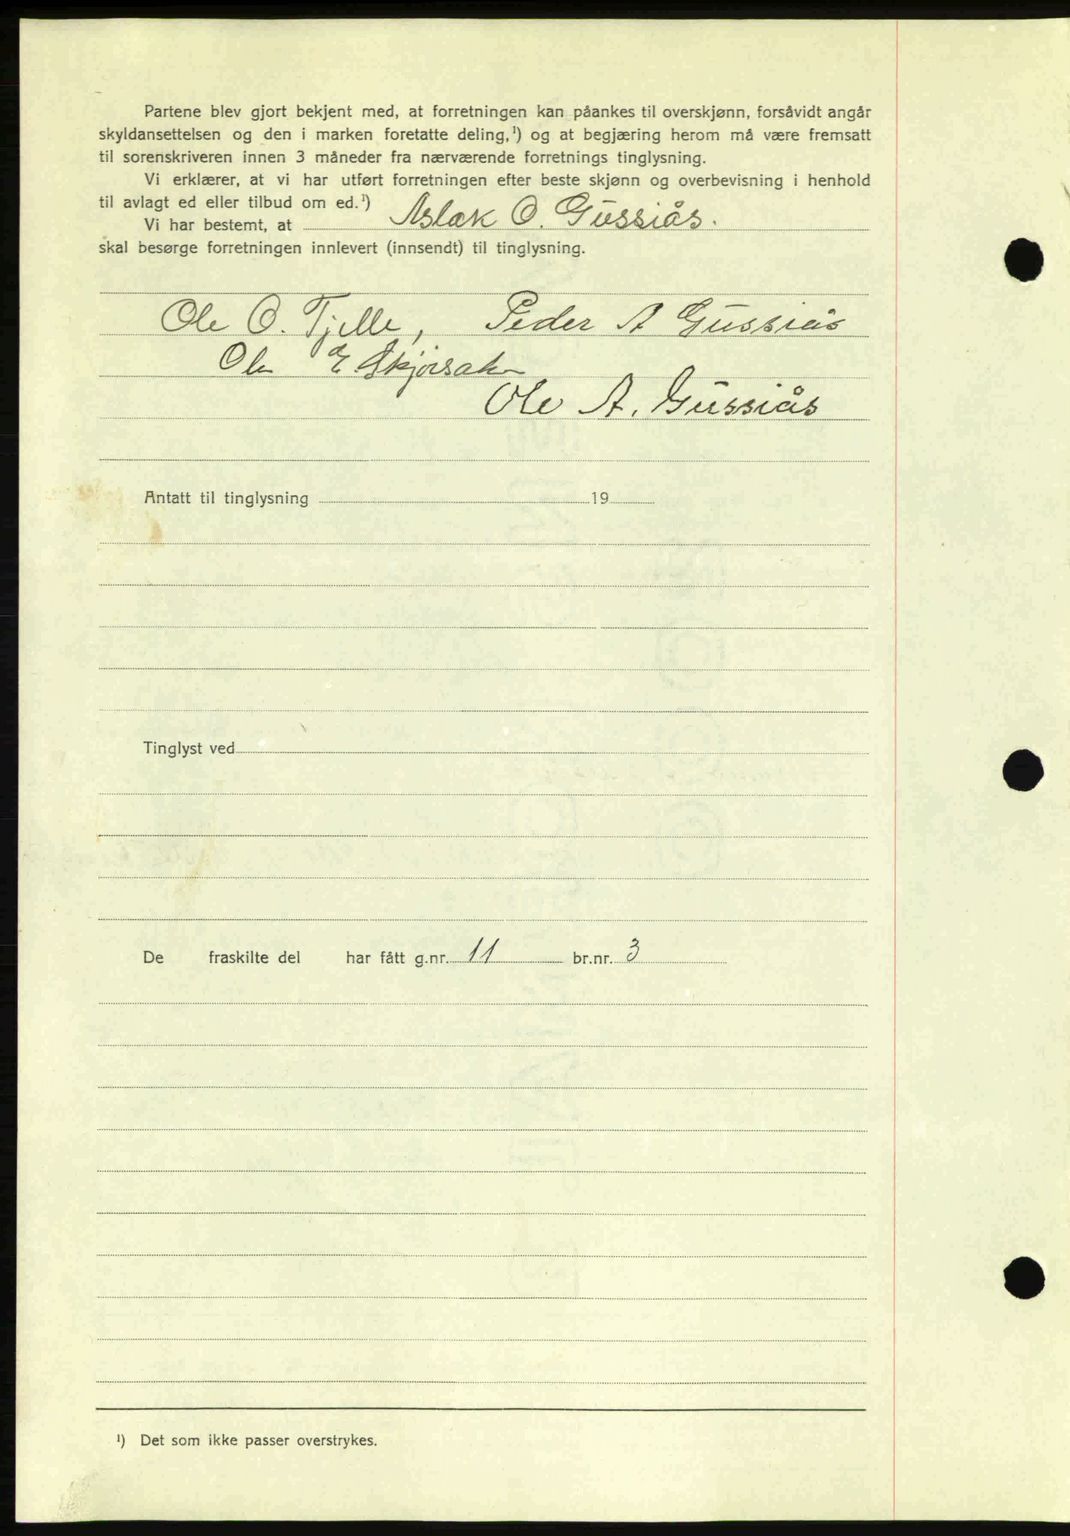 Partene blev gjort bekjent med, at forretningen kan påankes til overskjønn, forsåvidt angår
skyldansettelsen og den i marken foretatte deling,¹) og at begjæring herom må være fremsatt
til sorenskriveren innen 3 måneder fra nærværende forretnings tinglysning.
Vi erklærer, at vi har utført forretningen efter beste skjønn og overbevisning i henhold
til avlagt ed eller tilbud om ed.¹)
Vi har bestemt, at Aslak O. Gussiås.
skal besørge forretningen innlevert (innsendt) til tinglysning.
Ole O. Tjelle, Peder A Gussiås
Ole E Skjørsæter
Ole A. Gussiås
Antatt til tinglysning 19
Tinglyst ved
De fraskilte del har fått g.nr. 11 br.nr. 3
¹) Det som ikke passer overstrykes.